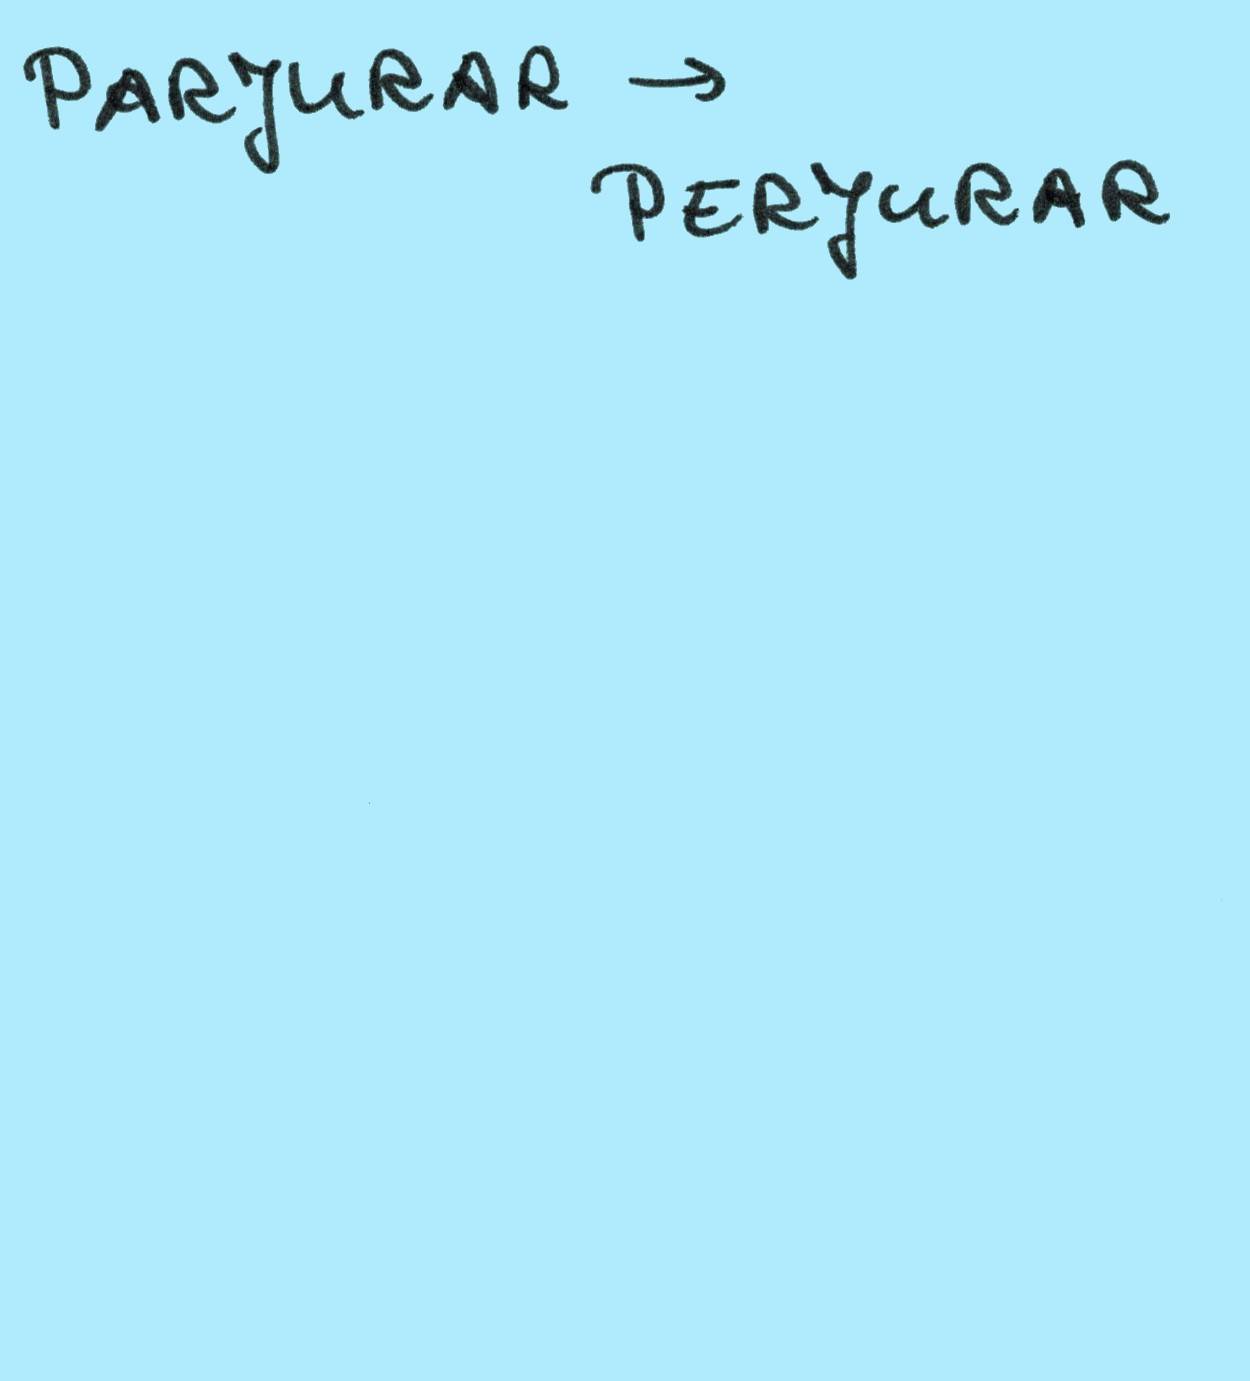 PARJURAR →
PERJURAR